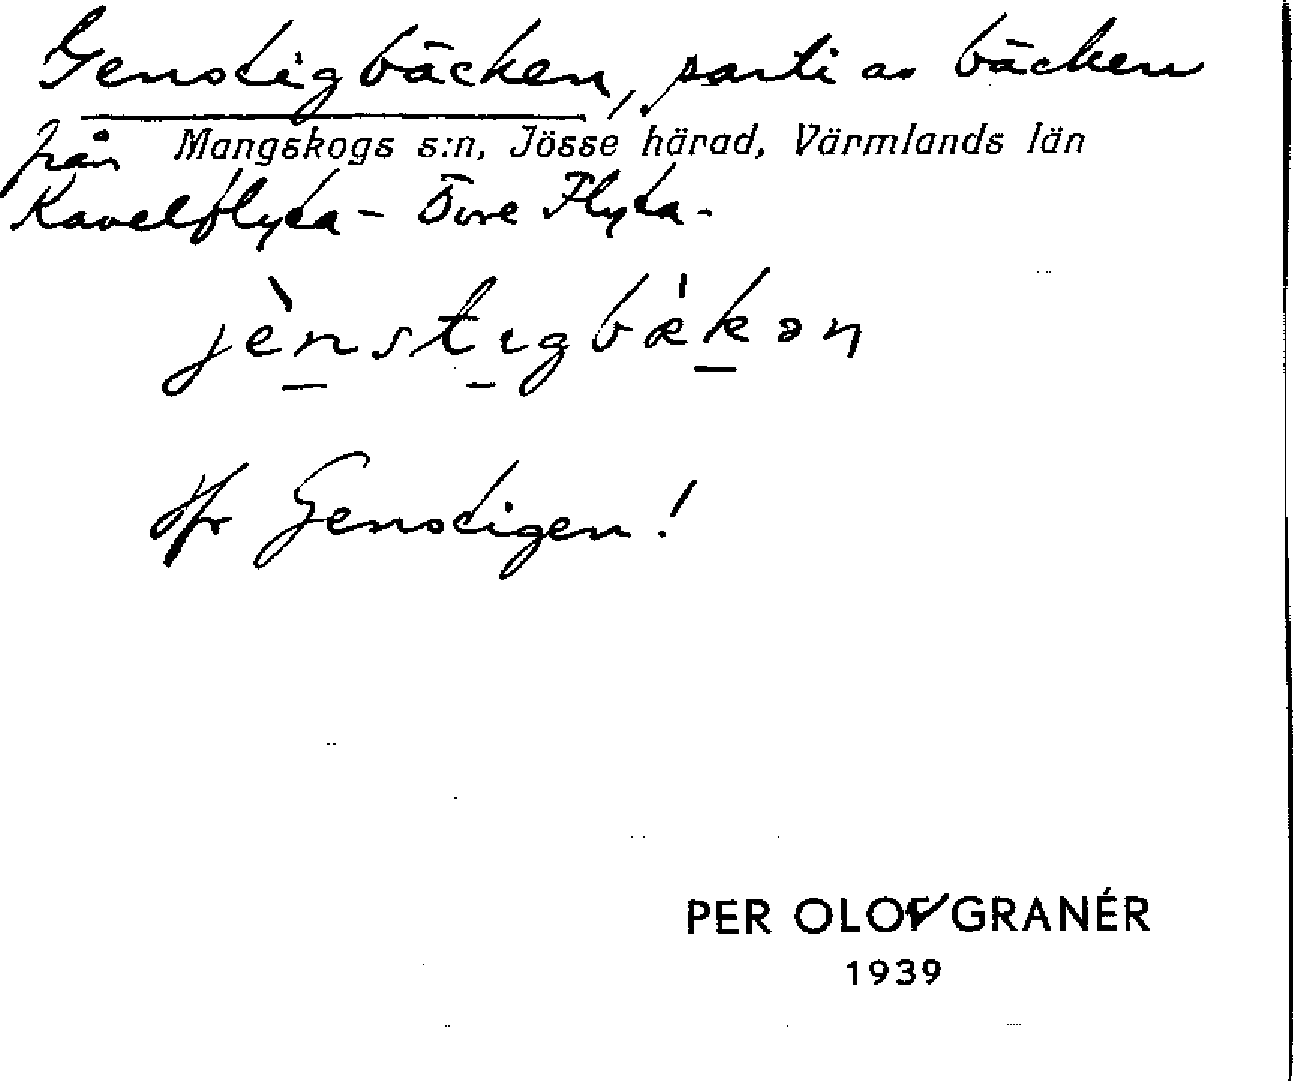 Genstigbäcken, parti av bäcken
från Mangskogs s:n, Jösse härad, Värmlands län
Kavelflyta - Övre Flyta.
jènstıgbækən
Jfr Genstigen!
PER OLOF GRANÉR
1939